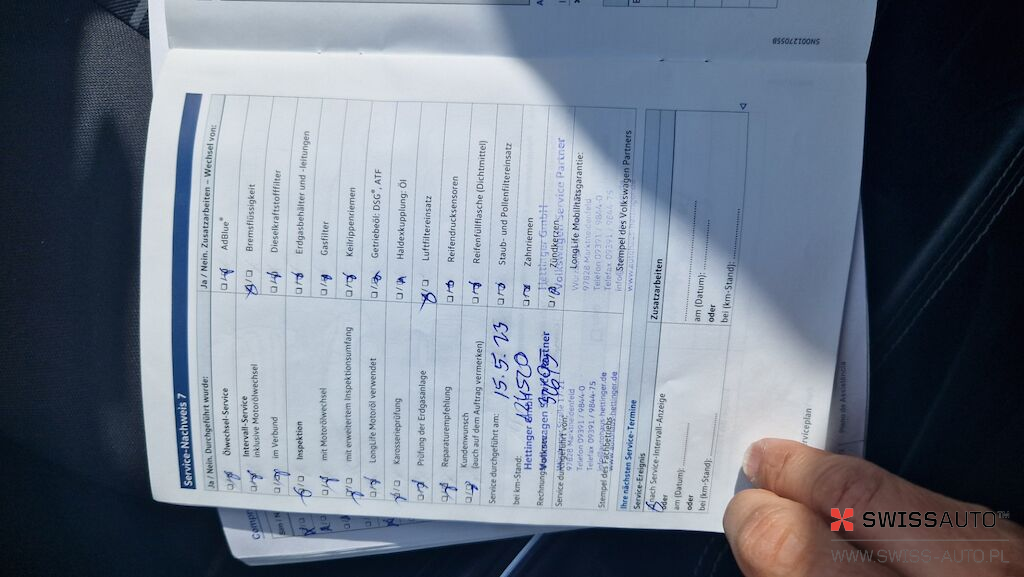 Service-Nachweis 7
Ja / Nein. Durchgeführt wurde:
Ölwechsel-Service
Intervall-Service
inklusive Motorölwechsel
im Verbund
Inspektion
mit Motorölwechsel
mit erweitertem Inspektionsumfang
LongLife Motoröl verwendet
Karosserieprüfung
Prüfung der Erdgasanlage
Reparaturempfehlung
Kundenwunsch
(auch auf dem Auftrag vermerken)
Service durchgeführt am: 15.5.23
bei km-Stand:
Hettinger GmbH
Volkswagen Service Partner
Service durchgeführt von:
97828 Marktheidenfeld
Telefon 09391 / 9844-0
Telefax 09391 / 9844-75
Stempel des Fachbetriebs
Ja / Nein. Zusatzarbeiten – Wechsel von:
AdBlue®
Bremsflüssigkeit
Dieselkraftstofffilter
Erdgasbehälter und -leitungen
Gasfilter
Keilrippenriemen
Getriebeöl: DSG®, ATF
Haldexkupplung: Öl
Luftfiltereinsatz
Reifendrucksensoren
Reifenfüllflasche (Dichtmittel)
Staub- und Pollenfiltereinsatz
Zahnriemen
Hettinger GmbH
Zündkerzen
Volkswagen Service Partner
LongLife Mobilitätsgarantie:
97828 Marktheidenfeld
Telefon 09391 / 9844-0
Telefax 09391 / 9844-75
Stempel des Volkswagen Partners
Ihre nächsten Service-Termine
Service-Ereignis
nach Service-Intervall-Anzeige
oder
am (Datum):
oder
bei (km-Stand):
Zusatzarbeiten
am (Datum):
oder
bei (km-Stand):
Serviceplan
SWISSAUTO™
WWW.SWISS-AUTO.PL